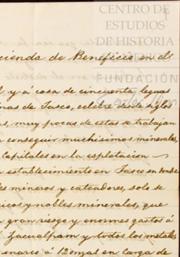 CENTRO DE
ESTUDIOS
DE HISTORIA
FUNDACIÓN
cienda de Beneficio en el
l y á cosa de cincuenta leguas
nas de Tasco, celebre
as, muy pocas de estas se trabajan
conseguir muchisimos minerales
Capitales en la esplotacion
establecimiento en Tasco en
les mineros y cateadores, solo se
icos y nobles minerales, que
gran riesgo y enormes gastos á
Zacualpam y todos los metales
marcos á 12 en carga de